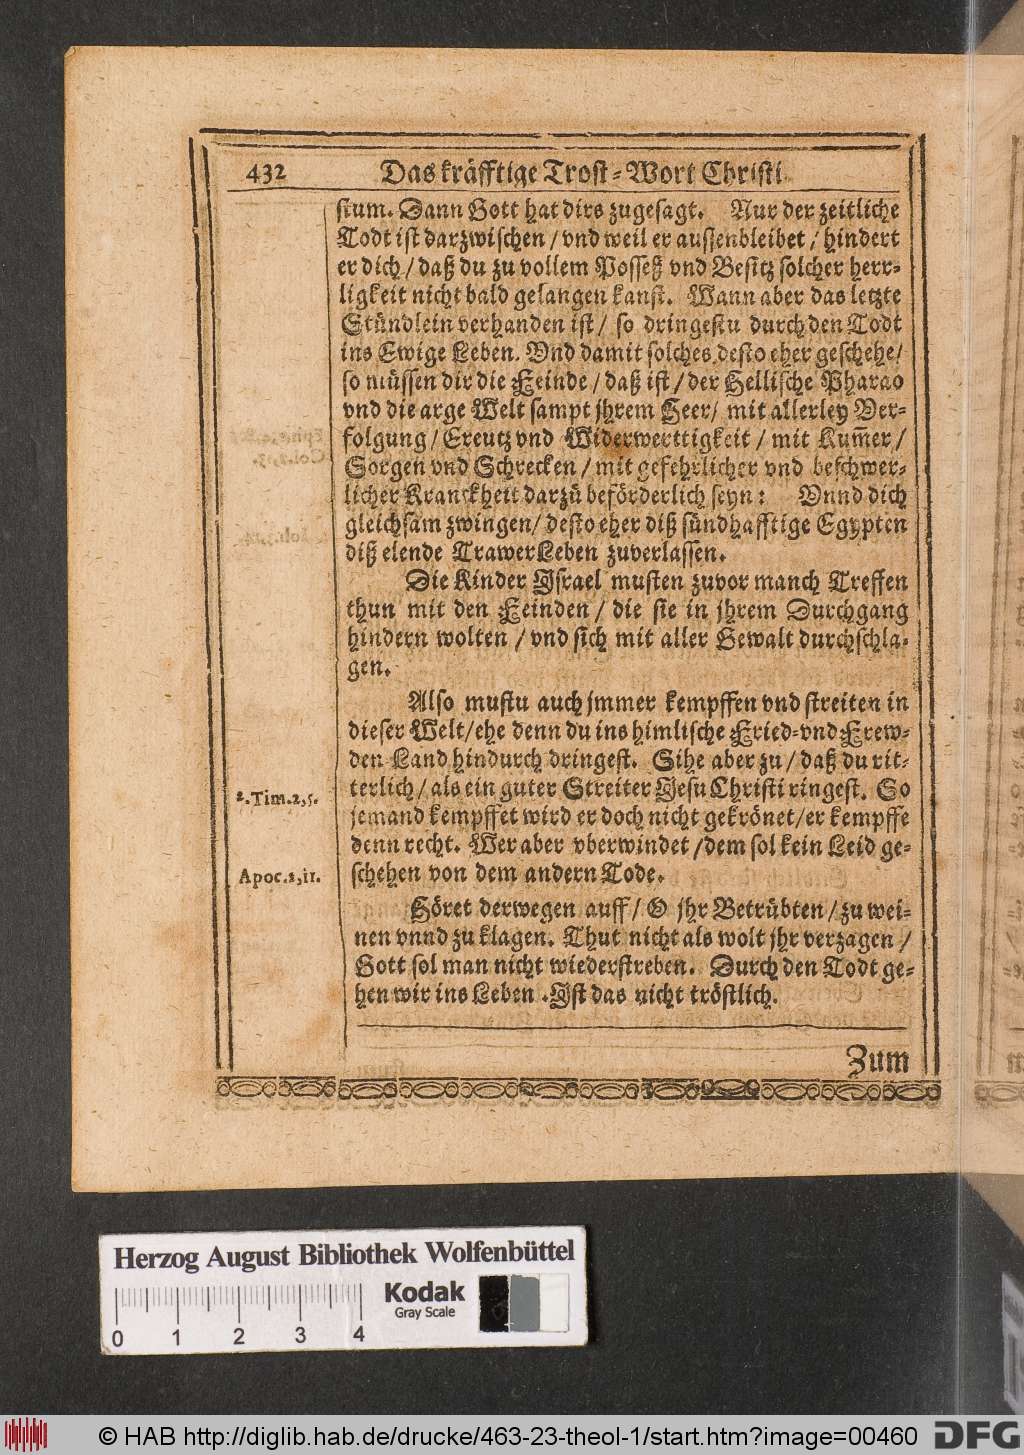 432 Das kräfftige Trost-Wort Christi
stum. Dann Gott hat dirs zugesagt. Nur der zeitliche
Todt ist darzwischen / vnd weil er aussenbleibet / hindert
er dich / daß du zu vollem Posseß vnd Besitz solcher herr-
ligkeit nicht bald gelangen kanst. Wann aber das letzte
Stündlein verhanden ist / so dringestu durch den Todt
ins Ewige Leben. Vnd damit solches desto eher geschehe /
so müssen dir die Feinde / daß ist / der Hellische Pharao
vnd die arge Welt sampt jhrem Heer / mit allerley Ver-
folgung / Creutz vnd Widerwerttigkeit / mit Kum̅er /
Sorgen vnd Schrecken / mit gefehrlicher vnd beschwer-
licher Kranckheit darzů beförderlich seyn: Vnnd dich
gleichsam zwingen / desto eher diß sündhafftige Egypten
diß elende TrawerLeben zuverlassen.
Die Kinder Jsrael musten zuvor manch Treffen
thun mit den Feinden / die sie in jhrem Durchgang
hindern wolten / vnd sich mit aller Gewalt durchschla-
gen.
Also mustu auch jmmer kempffen vnd streiten in
dieser Welt / ehe denn du ins himlische Fried- vnd Frew-
den Land hindurch dringest. Sihe aber zu / daß du rit-
terlich / als ein guter Streiter Jesu Christi ringest. So
2.Tim.2,5.
jemand kempffet wird er doch nicht gekrönet / er kempffe
denn recht. Wer aber vberwindet / dem sol kein Leid ge-
Apoc.2,11.
schehen von dem andern Tode.
Höret derwegen auff / O jhr Betrübten / zu wei-
nen vnnd zu klagen. Thut nicht als wolt jhr verzagen /
Gott sol man nicht wiederstreben. Durch den Todt ge-
hen wir ins Leben. Jst das nicht tröstlich.
Zum
Herzog August Bibliothek Wolfenbüttel
Kodak
Gray Scale
0 1 2 3 4
© HAB http://diglib.hab.de/drucke/463-23-theol-1/start.htm?image=00460
DFG